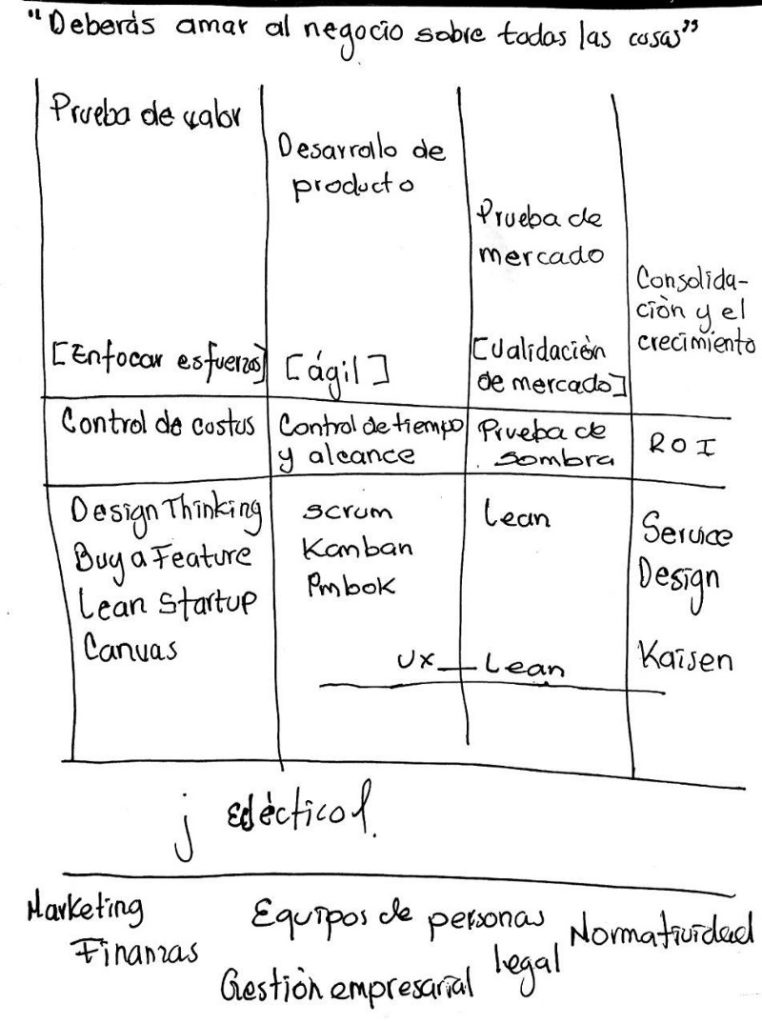 "Deberás amar al negocio sobre todas las cosas"
Prueba de valor
[Enfocar esfuerzos]
Desarrollo de
producto
[ágil]
Prueba de
mercado
[Validación
de mercado]
Consolida-
ción y el
crecimiento
Control de costos
Control de tiempo
y alcance
Prueba de
sombra
ROI
Design Thinking
Buy a Feature
Lean Startup
Canvas
scrum
Kanban
Pmbok
UX — Lean
Lean
Service
Design
Kaisen
¡Ecléctico!
Marketing
Finanzas
Equipos de personas
Gestión empresarial
legal
Normatividad